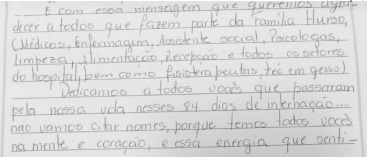 ... É com essa mensagem que queremos agra-
decer a todos que fazem parte da família Hurso,
(Médicos, Enfermagem, Assistente social, Psicologas,
limpeza, Alimentação, Recepção e todos os setores
do hospital, bem como fisioterapeutas, téc em gesso)
Dedicamos a todos vocês que passaram
pela nossa vida nesses 84 dias de internação...
não vamos citar nomes, porque temos todos vocês
na mente e coração, e essa energia que senti-